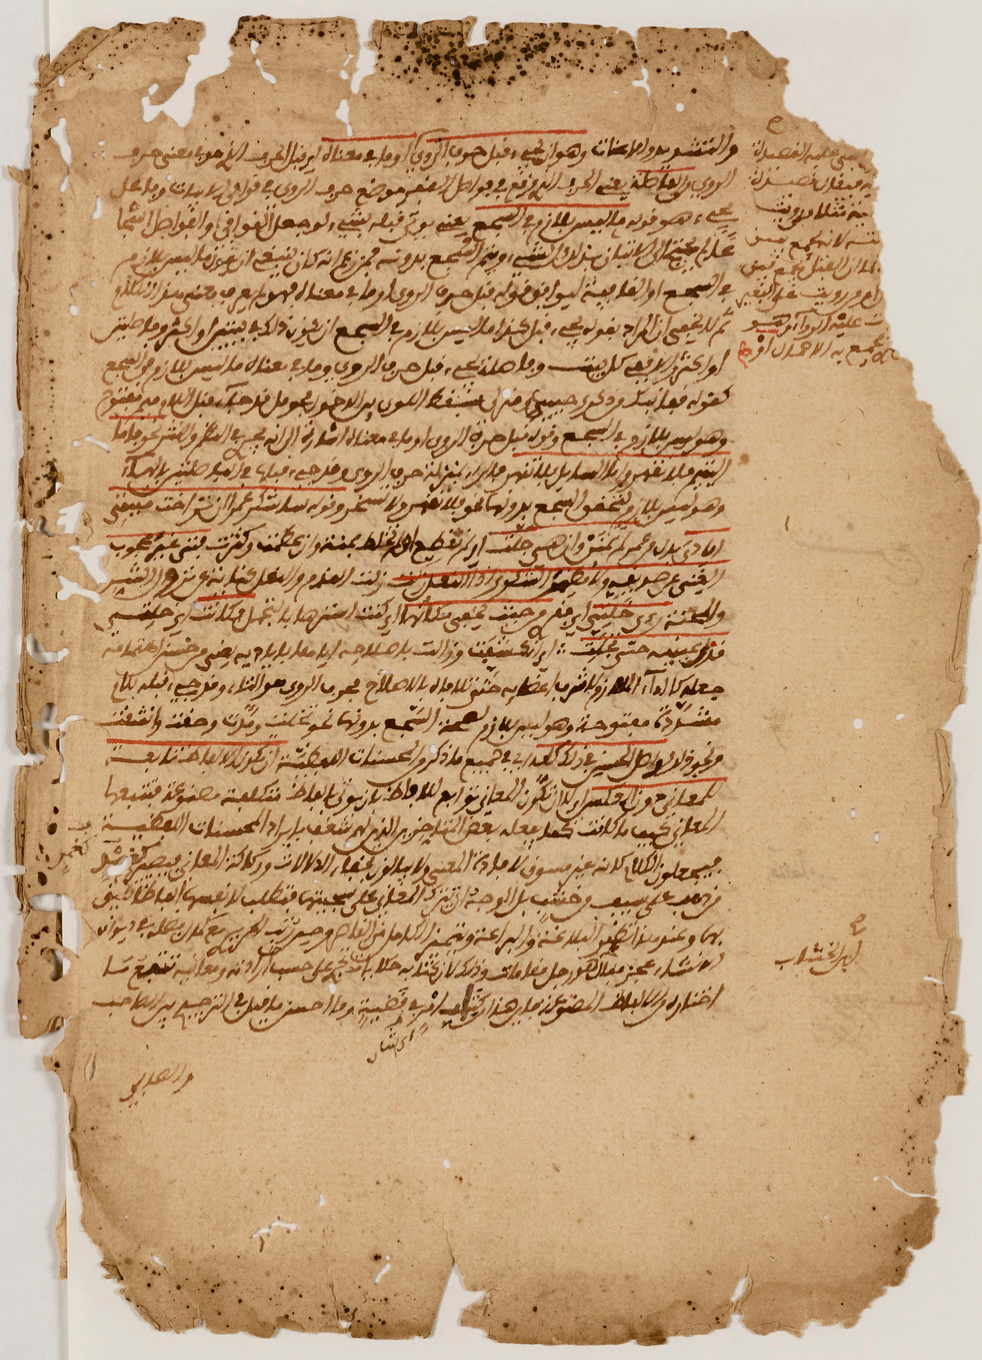 والتشديد والاعنات وهو ان يجيء قبل حرف الروي او ما في معناه اي قبل الحرف الذي هو في معنى حرف
الروي من الفاصلة يعني الحرف الذي وقع في فواصل الفقر موضع حرف الروي في قوافي الابيات وفاعل
يجيء هو قوله ما ليس بلازم في السجع يعني يوتى قبله بشيء لو جعل القوافي او الفواصل اسجا
عا لم يحتج الى الاتيان بذلك الشيء ويتم السجع بدونه فمن زعم انه كان ينبغي ان يقول ما ليس بلازم
في السجع او القافية ليوافق قوله قبل حرف الروي او ما في معناه فهو لم يعرف معنى هذا الكلام
ثم لا يخفى ان المراد بقوله يجيء قبل كذا ما ليس بلازم في السجع ان يكون ذلك في بيتين او اكثر او فاصلتين
او اكثر والا ففي كل بيت وفاصلة يجيء قبل حرف الروي وما في معناه ما ليس بلازم في السجع
كقوله قفا نبك من ذكرى حبيب ومنزل بسقط اللوى بين الدخول فحومل قد جاء قبل اللام ميم مفتوح
وهو ليس بلازم في السجع وقوله قبل حرف الروي او ما في معناه اشارة الى انه يجري في النظم والنثر نحو فاما
اليتيم فلا تقهر واما السائل فلا تنهر فالراء بمنزلة حرف الروي وقد جيء قبلها في الفاصلتين بالهاء
وهو ليس بلازم لتحقق السجع بدونها نحو فلا تنهر ولا تسخر وقوله ساشكر عمرا ان تراخت منيتي
ايادي بدل من عمر لم تمنن وان هي جلت اي لم تقطع او لم تخلط بمنة وان عظمت وكثرت فتى غير محجوب
الغنى عن صديقه ولا مظهر الشكوى اذا النعل زلت زلت القدم والنعل كناية عن نزول الشر
والمحنة راى خلتي اي فقري من حيث يخفى مكانها اي كنت استرها بالتجمل فكانت اي خلتي
قذى عينيه حتى تجلت اي انكشفت وزالت باصلاحه اياها باياديه يعني من حسن اهتمامه
جعله كالداء الملازم لاشرف اعضايه حتى تلافاه بالاصلاح فحرف الروي هو التاء وقد جيء قبله بلام
مشددة مفتوحة وهو ليس بلازم لصحة السجع بدونها نحو تجلت ومدت وحقت وانشقت
ونحو ذلك واصل الحسن في ذلك كله اي في جميع ما ذكر من المحسنات اللفظية ان تكون الالفاظ تابعة
للمعاني دون العكس اي لا ان تكون المعاني توابع للالفاظ بان يوتى بالفاظ متكلفة مصنوعة فتتبعها
المعاني كيف ما كانت كما يفعله بعض المتاخرين الذين لهم شغف بايراد المحسنات اللفظية
فيجعلون الكلام كانه غير مسوق لافادة المعنى ولا يبالون بخفاء الدلالات وركاكة المعاني فيصير كغمد
من ذهب على سيف من خشب بل الوجه ان تترك المعاني على سجيتها فتطلب لانفسها الفاظا تليق
بها وعند هذا تظهر البلاغة والبراعة ويتميز الكامل من القاصر وحين رتب الحريري مع كمال فضله في ديوان
الانشاء عجز فقال ابن الخشاب هو رجل مقاماتي وذلك لان كتابه حكايات تجري على حسب ارادته ومعانيه تتبع ما
اختاره من الالفاظ المصنوعة فاين هذا من كتاب امر في قضية وما احسن ما قيل في الترجيح بين الصاحب
والصابي
ابن الخشاب